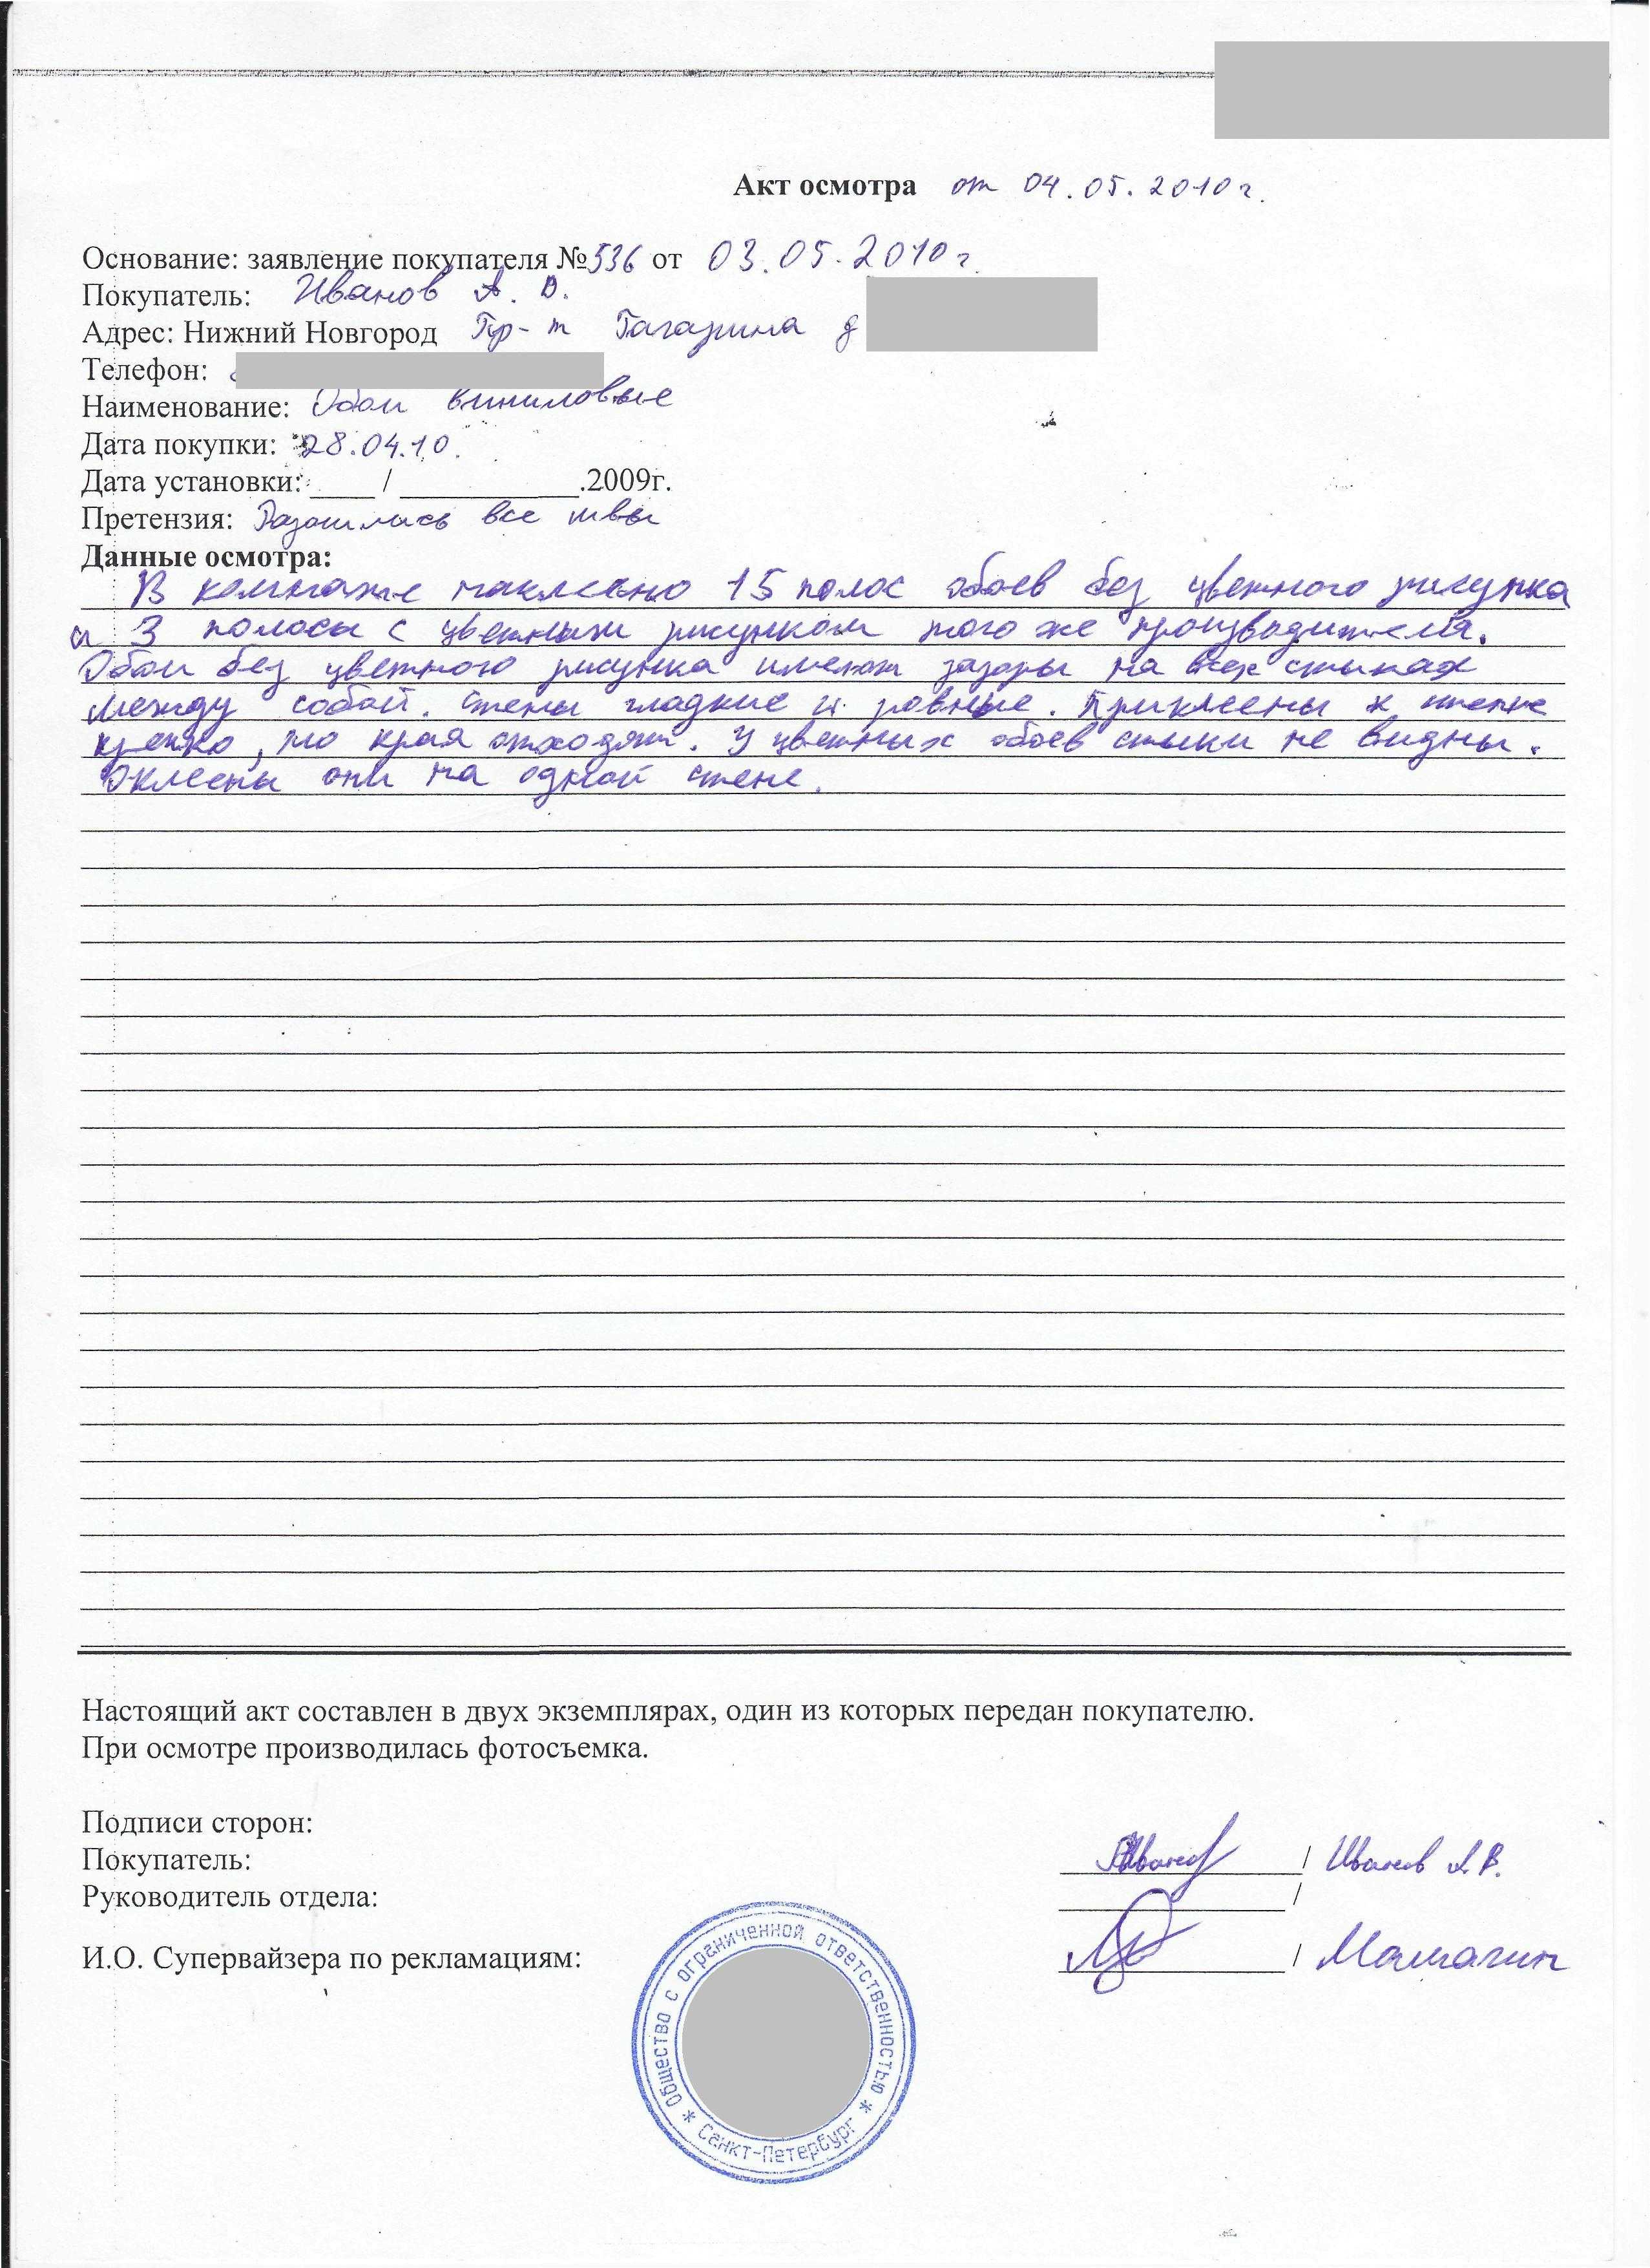 Акт осмотра от 04.05.2010г.
Основание: заявление покупателя №536 от 03.05.2010г.
Покупатель: Иванов А. В.
Адрес: Нижний Новгород Пр-т Гагарина д
Телефон:
Наименование: Обои виниловые
Дата покупки: 28.04.10.
Дата установки: ____ / ___________.2009г.
Претензия: Разошлись все швы
Данные осмотра:
В комнате наклеено 15 полос обоев без цветного рисунка
и 3 полосы с цветным рисунком того же производителя.
Обои без цветного рисунка имеют зазоры на всех стыках
между собой. Стены гладкие и ровные. Приклеены к стене
крепко, но края отходят. У цветных обоев стыки не видны.
Оклеены они на одной стене.
Настоящий акт составлен в двух экземплярах, один из которых передан покупателю.
При осмотре производилась фотосъемка.
Подписи сторон:
Покупатель: Иванов / Иванов А.В.
Руководитель отдела: /
И.О. Супервайзера по рекламациям: /
Общество с ограниченной ответственностью * Санкт-Петербург *